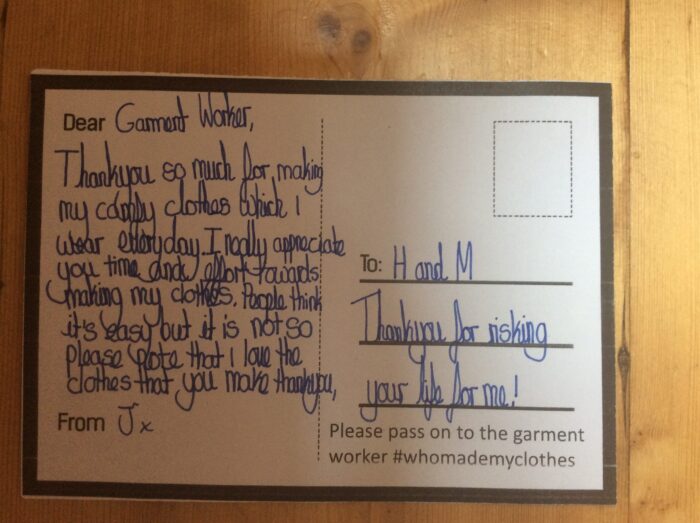 Dear Garment Worker,
Thankyou so much for making
my comfy clothes which I
wear everyday. I really appreciate
you time and effort towards
making my clothes. People think
it's easy but it is not so
please note that I love the
clothes that you make thankyou,
From J x
To: H and M
Thankyou for risking
your life for me!
Please pass on to the garment
worker #whomademyclothes